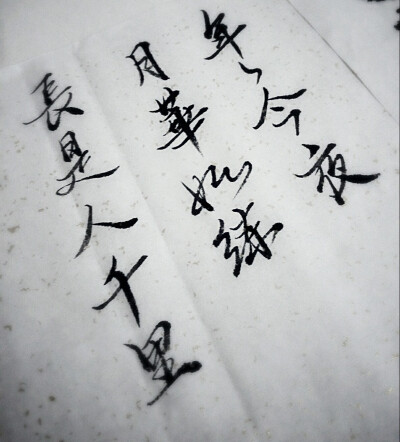 年〻今夜
月華如練
長是人千里